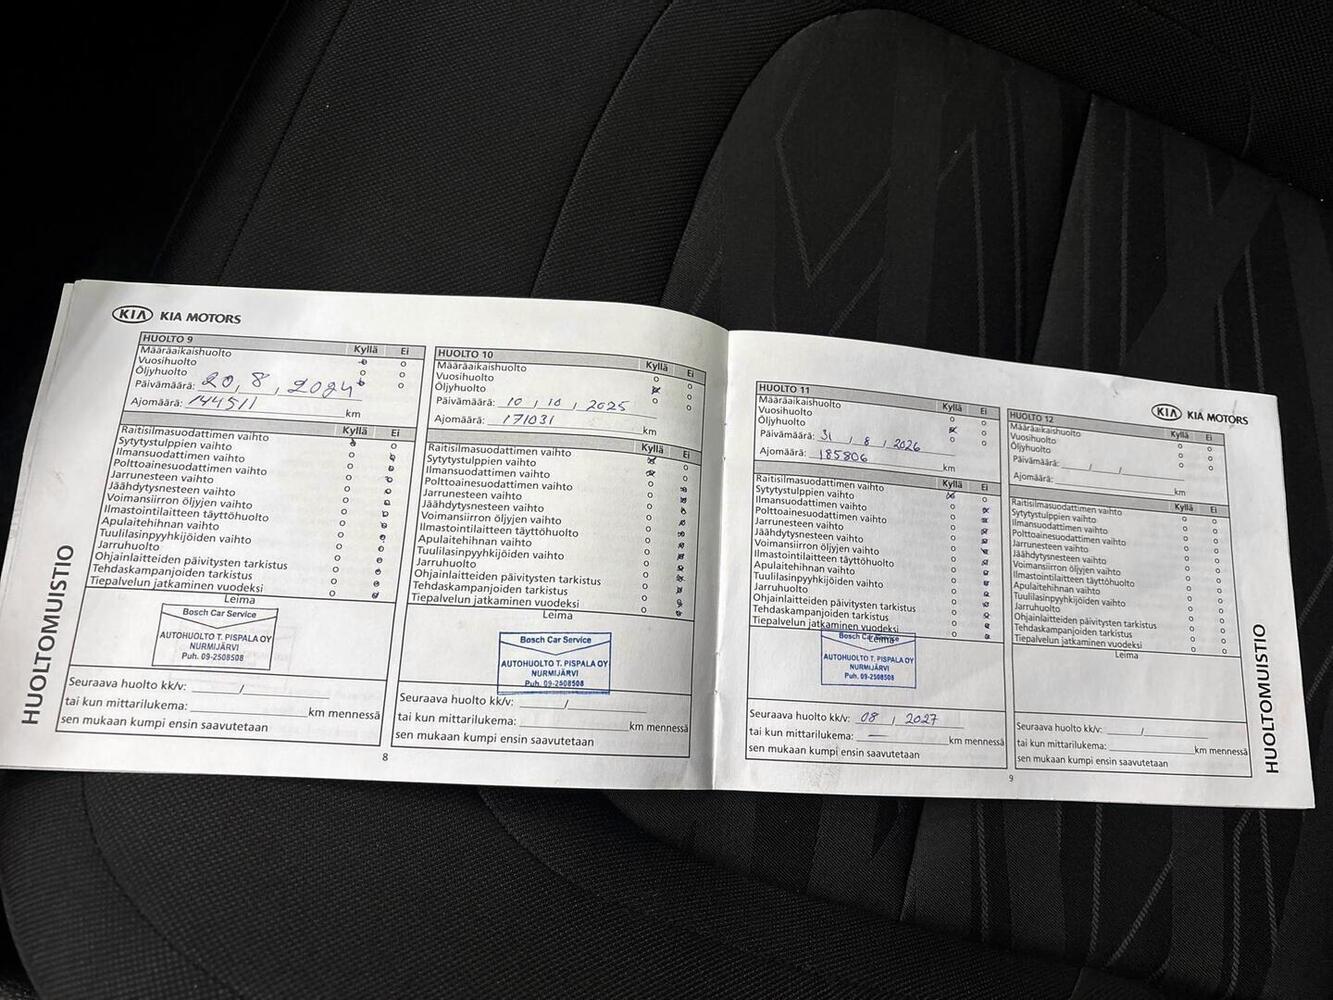 KIA KIA MOTORS
HUOLTO 9 Kyllä Ei
Määräaikaishuolto
Vuosihuolto
Öljyhuolto
Päivämäärä: 20, 8, 2024
Ajomäärä: 144511 km
Kyllä Ei
Raitisilmasuodattimen vaihto
Sytytystulppien vaihto
Ilmansuodattimen vaihto
Polttoainesuodattimen vaihto
Jarrunesteen vaihto
Jäähdytysnesteen vaihto
Voimansiirron öljyjen vaihto
Ilmastointilaitteen täyttöhuolto
Apulaitehihnan vaihto
Tuulilasinpyyhkijöiden vaihto
Jarruhuolto
Ohjainlaitteiden päivitysten tarkistus
Tehdaskampanjoiden tarkistus
Tiepalvelun jatkaminen vuodeksi
Leima
Bosch Car Service
AUTOHUOLTO T. PISPALA OY
NURMIJÄRVI
Puh. 09-2508508
Seuraava huolto kk/v: /
tai kun mittarilukema: km mennessä
sen mukaan kumpi ensin saavutetaan
HUOLTOMUISTIO
HUOLTO 10 Kyllä Ei
Määräaikaishuolto
Vuosihuolto
Öljyhuolto
Päivämäärä: 10 , 10 , 2025
Ajomäärä: 171031 km
Kyllä Ei
Raitisilmasuodattimen vaihto
Sytytystulppien vaihto
Ilmansuodattimen vaihto
Polttoainesuodattimen vaihto
Jarrunesteen vaihto
Jäähdytysnesteen vaihto
Voimansiirron öljyjen vaihto
Ilmastointilaitteen täyttöhuolto
Apulaitehihnan vaihto
Tuulilasinpyyhkijöiden vaihto
Jarruhuolto
Ohjainlaitteiden päivitysten tarkistus
Tehdaskampanjoiden tarkistus
Tiepalvelun jatkaminen vuodeksi
Leima
Bosch Car Service
AUTOHUOLTO T. PISPALA OY
NURMIJÄRVI
Puh. 09-2508508
Seuraava huolto kk/v: /
tai kun mittarilukema: km mennessä
sen mukaan kumpi ensin saavutetaan
8
HUOLTO 11 Kyllä Ei
Määräaikaishuolto
Vuosihuolto
Öljyhuolto
Päivämäärä: 31 , 8 , 2026
Ajomäärä: 185806 km
Kyllä Ei
Raitisilmasuodattimen vaihto
Sytytystulppien vaihto
Ilmansuodattimen vaihto
Polttoainesuodattimen vaihto
Jarrunesteen vaihto
Jäähdytysnesteen vaihto
Voimansiirron öljyjen vaihto
Ilmastointilaitteen täyttöhuolto
Apulaitehihnan vaihto
Tuulilasinpyyhkijöiden vaihto
Jarruhuolto
Ohjainlaitteiden päivitysten tarkistus
Tehdaskampanjoiden tarkistus
Tiepalvelun jatkaminen vuodeksi
Leima
Bosch Car Service
AUTOHUOLTO T. PISPALA OY
NURMIJÄRVI
Puh. 09-2508508
Seuraava huolto kk/v: 08 , 2027
tai kun mittarilukema: — km mennessä
sen mukaan kumpi ensin saavutetaan
KIA KIA MOTORS
HUOLTO 12 Kyllä Ei
Määräaikaishuolto
Vuosihuolto
Öljyhuolto
Päivämäärä: / /
Ajomäärä: km
Kyllä Ei
Raitisilmasuodattimen vaihto
Sytytystulppien vaihto
Ilmansuodattimen vaihto
Polttoainesuodattimen vaihto
Jarrunesteen vaihto
Jäähdytysnesteen vaihto
Voimansiirron öljyjen vaihto
Ilmastointilaitteen täyttöhuolto
Apulaitehihnan vaihto
Tuulilasinpyyhkijöiden vaihto
Jarruhuolto
Ohjainlaitteiden päivitysten tarkistus
Tehdaskampanjoiden tarkistus
Tiepalvelun jatkaminen vuodeksi
Leima
Seuraava huolto kk/v: /
tai kun mittarilukema: km mennessä
sen mukaan kumpi ensin saavutetaan
HUOLTOMUISTIO
9